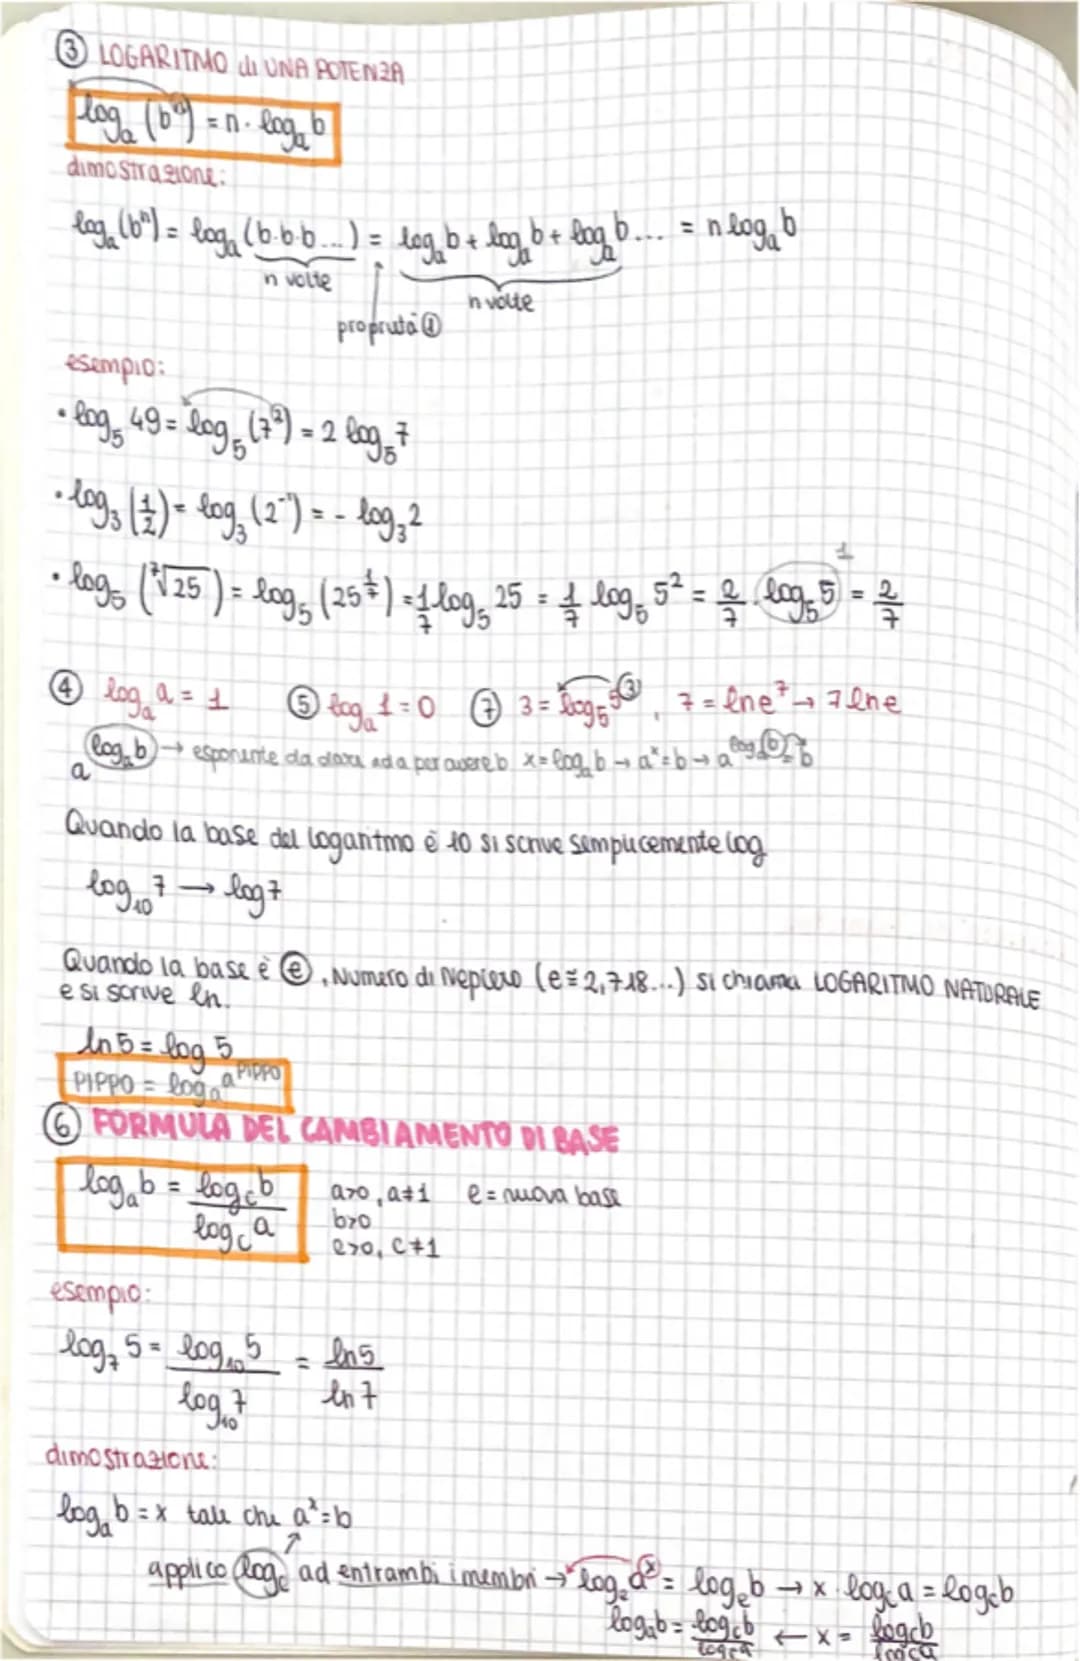 ③ LOGARITMO di UNA POTENZA
logₐ(bⁿ) = n · logₐ b
dimostrazione:
logₐ(bⁿ) = logₐ(b·b·b...) = logₐ b + logₐ b + logₐ b... = n logₐ b
n volte
n volte
proprietà ①
esempio:
• log₅ 49 = log₅ (7²) = 2 log₅ 7
• log₃ (1/2) = log₃ (2⁻¹) = - log₃ 2
• log₅ (⁷√25) = log₅ (25^(1/7)) = 1/7 log₅ 25 = 1/7 log₅ 5² = 2/7 · log₅ 5 = 2/7
1
④ logₐ a = 1 ⑤ logₐ 1 = 0 ⑦ 3 = log₅ 5³, 7 = ln e⁷ → 7 ln e
a^(logₐ b) → esponente da dare ad a per avere b x = logₐ b → aˣ = b → a^(logₐ b) = b
Quando la base del logaritmo è 10 si scrive semplicemente log
log₁₀ 7 → log 7
Quando la base è e, Numero di Nepiero (e ≅ 2,718...) si chiama LOGARITMO NATURALE
e si scrive ln.
ln 5 = log 5
PIPPO = logₐ a^PIPPO
⑥ FORMULA DEL CAMBIAMENTO DI BASE
logₐ b = log_c b / log_c a a>0, a≠1 c = nuova base
b>0
c>0, c≠1
esempio:
log₇ 5 = log₁₀ 5 / log₁₀ 7 = ln 5 / ln 7
dimostrazione:
logₐ b = x tale che aˣ = b
applico log_c ad entrambi i membri → log_c aˣ = log_c b → x · log_c a = log_c b
logₐ b = log_c b / log_c a ← x = log_c b / log_c a